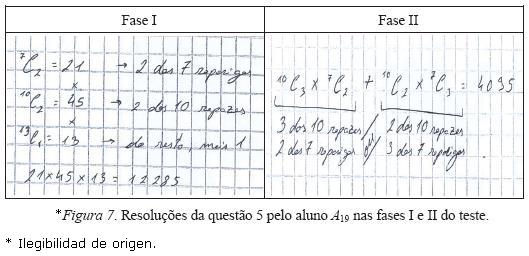 Fase I
Fase II
⁷C₂ = 21 → 2 das 7 raparigas
x
¹⁰C₂ = 45 → 2 dos 10 rapazes
x
¹³C₁ = 13 → do resto, mais 1
21 x 45 x 13 = 12285
¹⁰C₃ x ⁷C₂ + ¹⁰C₂ x ⁷C₃ = 4095
3 dos 10 rapazes / 2 dos 10 rapazes
2 das 7 raparigas ou 3 das 7 raparigas
*Figura 7. Resoluções da questão 5 pelo aluno A₁₉ nas fases I e II do teste.
* Ilegibilidad de origen.